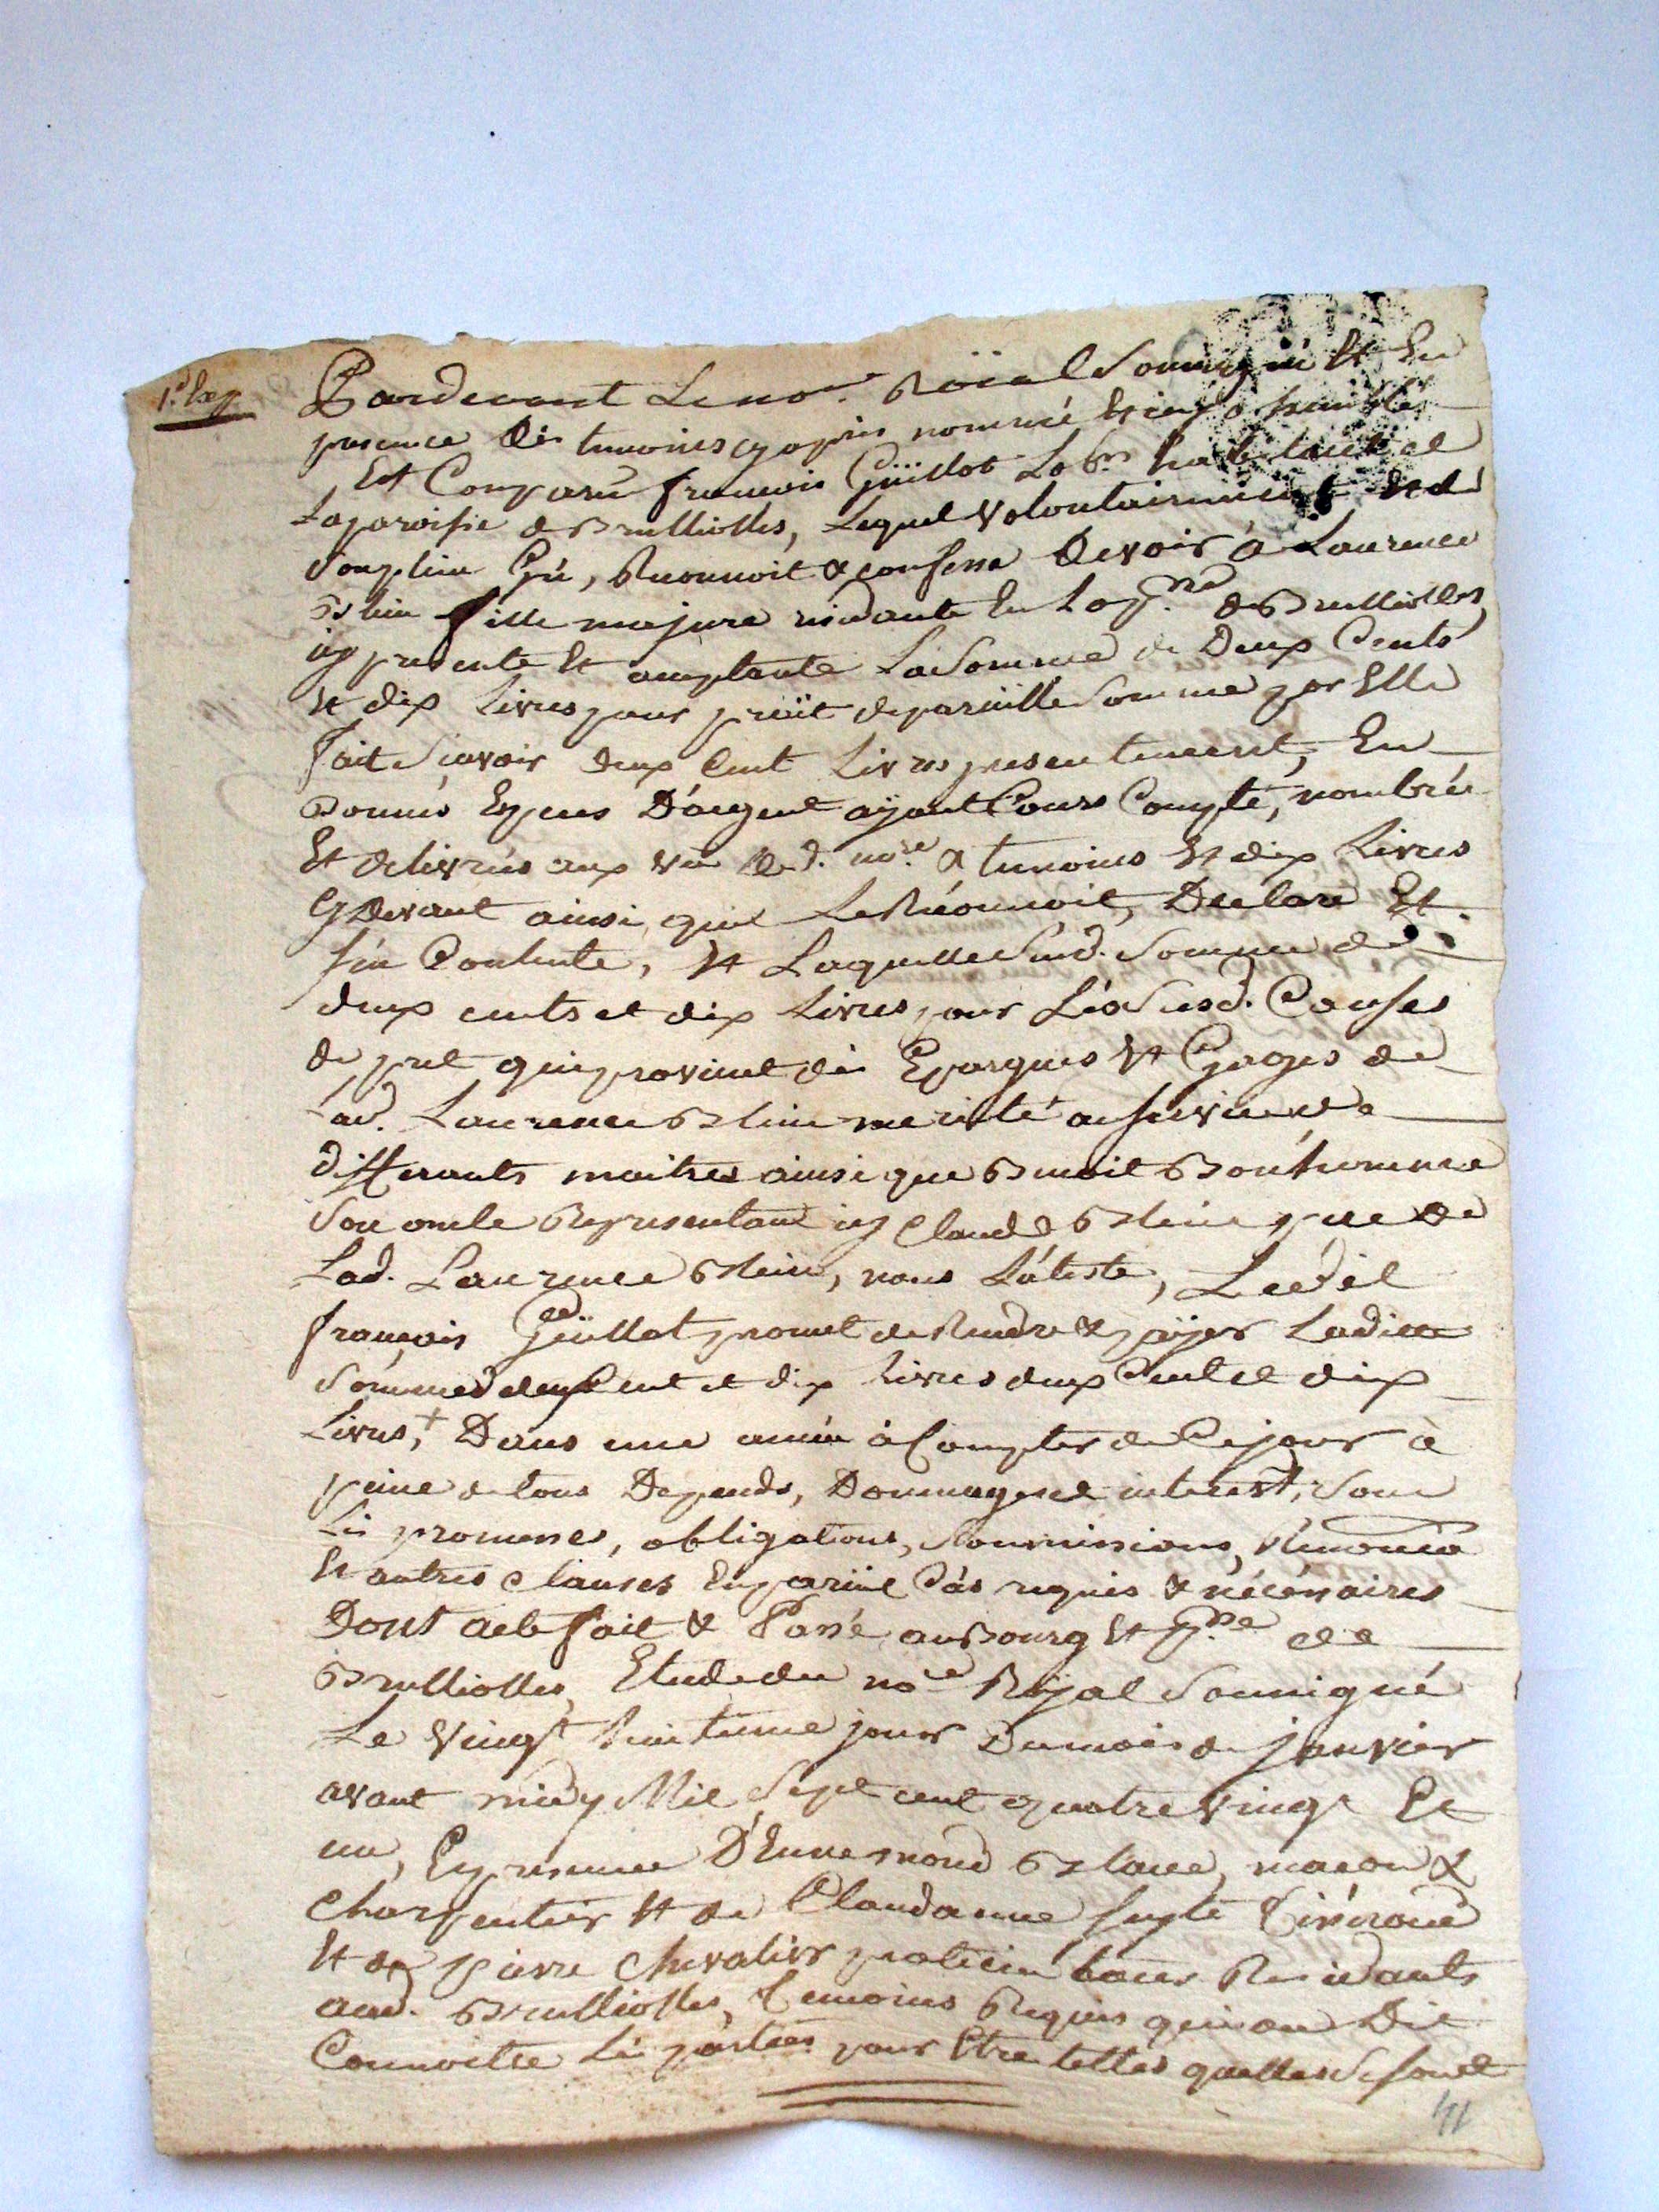 1.e Exp
Pardevant Le no.re Roïal Soussigné Et En
presence Des temoins cy après nommé
Est Comparu francois Güillot Lab.r habitant de
La paroisse de Brulliolles, Lequel volontairement Et de
Son plein Gré, Reconnoit & confesse Devoir à Laurence
Blein fille majeure residante En La p.sse de Brulliolles
icy presente Et acceptante La Somme de Deux Cents
Et dix Livres pour prêt de pareille Somme par Elle
fait Sçavoir deux Cent Livres presentement, En
Bonnes Especes D'argent aÿant Cours Compté, nombrée
Et delivrés aux vu dud. no.re & temoins Et dix Livres
Cy devant ainsi qu'il Le Réconnoit, Declare Et
s'en Contente, Et Laquelle Susd. Somme de
deux cents et dix Livres pour Les Susd. Causes
de pret qui provient des Epargnes Et Gages de
Lad. Laurence Blein merité au service de
differants maitres ainsi que Benoit Bonhomme
Son oncle Representant icy Claude Blein pere de
Lad. Laurence Blein, nous L'ateste, Led. il
françois Güillot promet de Rendre & païer Laditte
Somme de deux Cent et dix Livres deux Cent et dix
Livres,+ Dans une année à Compter de Ce jour à
peine de tous Depends, Dommages et interest, Sous
Les promesses, obligations, Soumissions, Rénoncia
Et autres Clauses En pareil Cas requis & nécéssaires
Dont acte fait & Passé au Bourg Et p.sse de
Brulliolles, Etude du no.re Roÿal Soussigné
Le vingt huitieme jour Du mois de janvier
avant midy Mil Sept cent quatre vingt Et
un, En presence D'Ennemond Blanc, macon &
Charpentier Et de Claud
Et de pierre Chevalier praticien tous Residants
aud. Brulliolles, Temoins Requis qui ont Dit
Connoitre Les parties pour Etre telles quelles Se sont